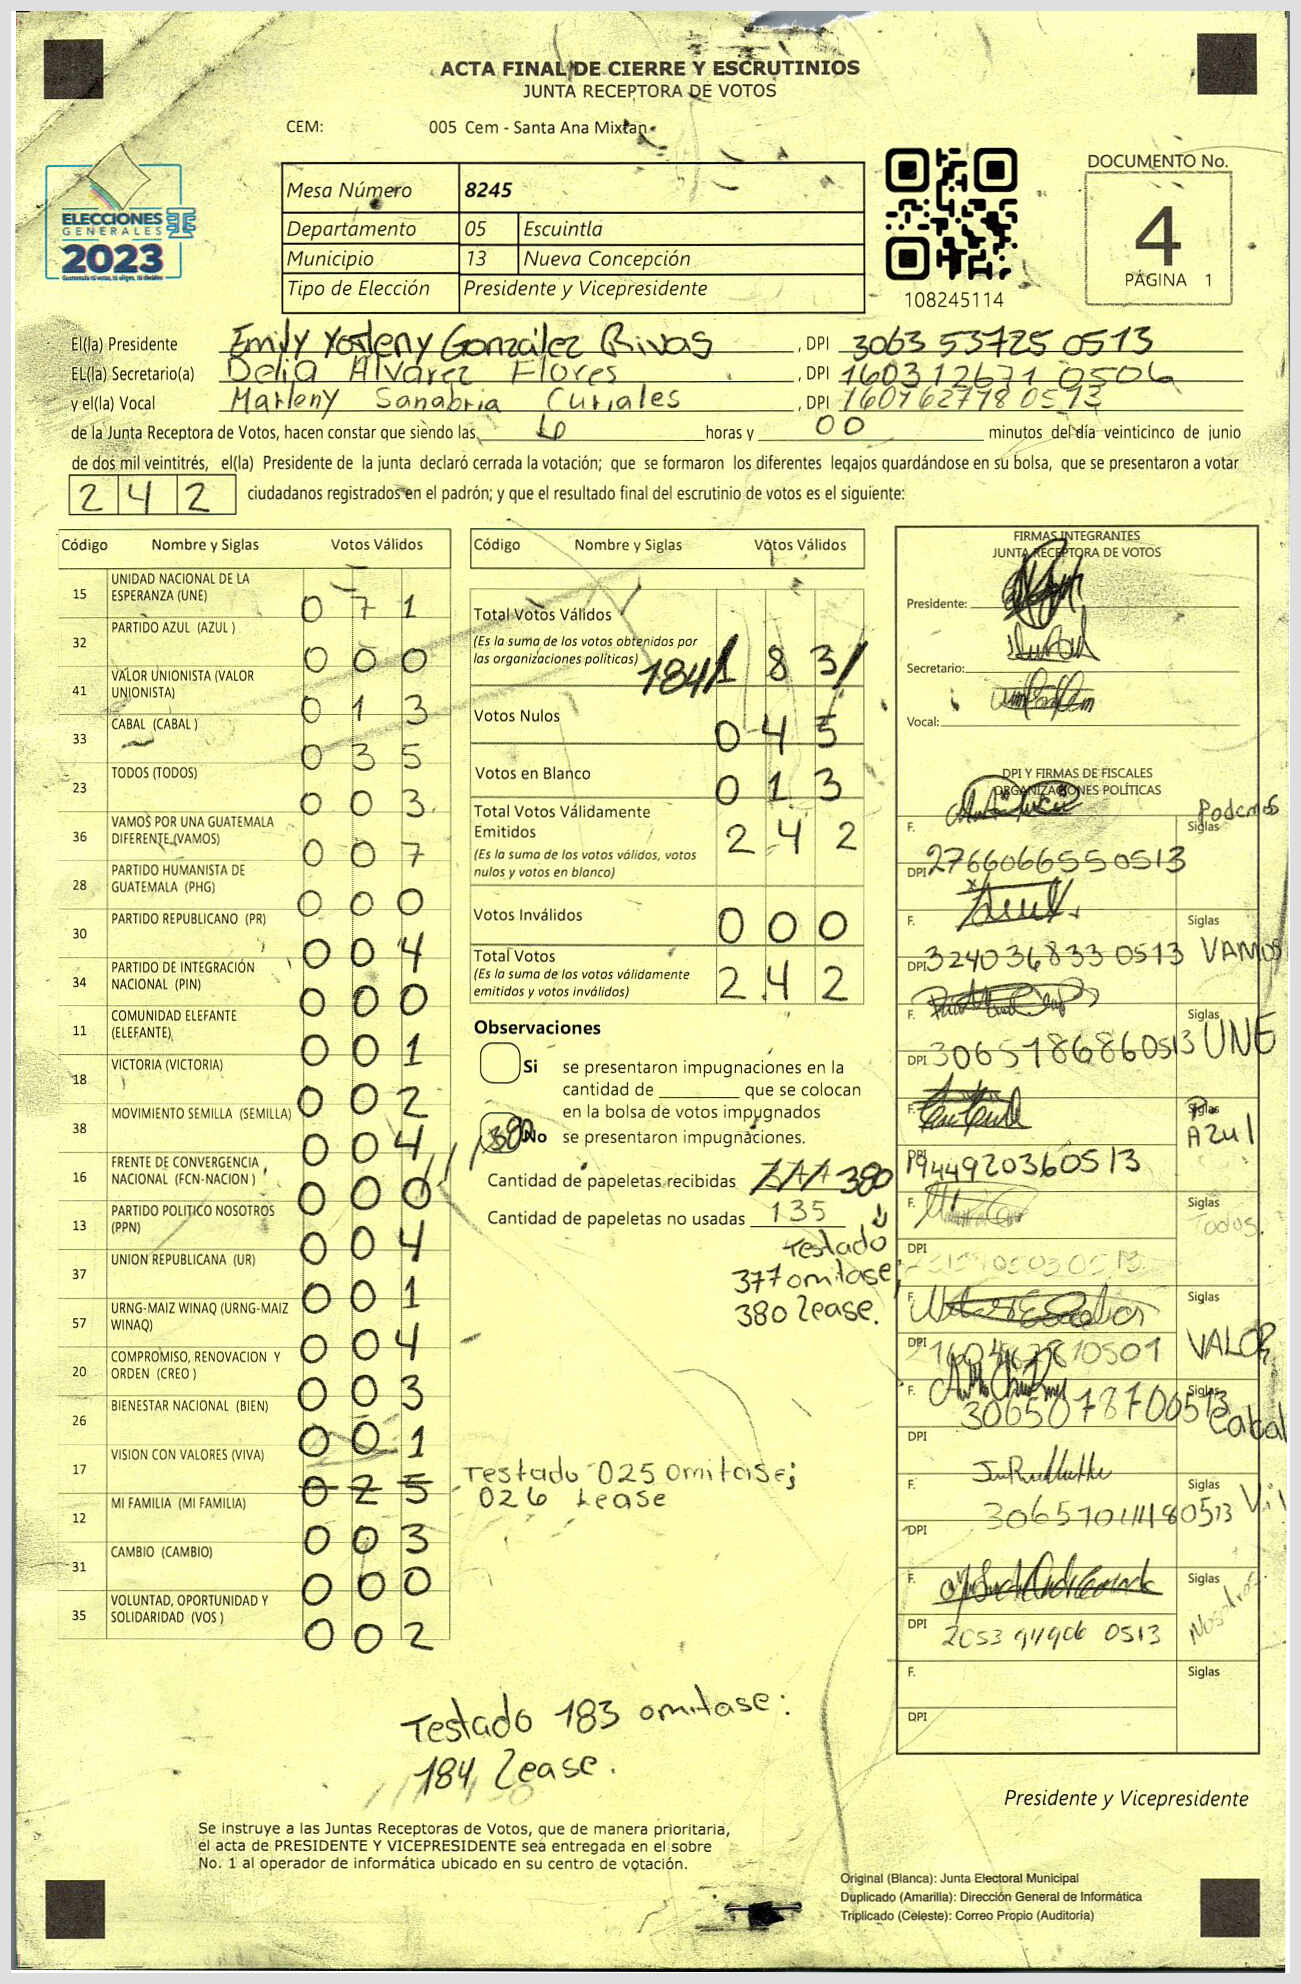 ACTA FINAL DE CIERRE Y ESCRUTINIOS
JUNTA RECEPTORA DE VOTOS
CEM: 005 Cem - Santa Ana Mixtan
ELECCIONES
GENERALES
2023
Mesa Número 8245
Departamento 05 Escuintla
Municipio 13 Nueva Concepción
Tipo de Elección Presidente y Vicepresidente
108245114
DOCUMENTO No.
4
PÁGINA 1
El(la) Presidente Emily Yosleny González Rivas, DPI 3063 53725 0513
EL(la) Secretario(a) Delia Alvarez Flores, DPI 160312671 0506
y el(la) Vocal Marleny Sanabria Curiales, DPI
de la Junta Receptora de Votos, hacen constar que siendo las 6 horas y 00 minutos del día veinticinco de junio
de dos mil veintitrés, el(la) Presidente de la junta declaró cerrada la votación; que se formaron los diferentes legajos guardándose en su bolsa, que se presentaron a votar
242 ciudadanos registrados en el padrón; y que el resultado final del escrutinio de votos es el siguiente:
Código Nombre y Siglas Votos Válidos
15 UNIDAD NACIONAL DE LA ESPERANZA (UNE) 071
32 PARTIDO AZUL (AZUL ) 000
41 VALOR UNIONISTA (VALOR UNIONISTA) 013
33 CABAL (CABAL ) 035
23 TODOS (TODOS) 003
36 VAMOS POR UNA GUATEMALA DIFERENTE (VAMOS) 007
28 PARTIDO HUMANISTA DE GUATEMALA (PHG) 000
30 PARTIDO REPUBLICANO (PR) 004
34 PARTIDO DE INTEGRACIÓN NACIONAL (PIN) 000
11 COMUNIDAD ELEFANTE (ELEFANTE) 001
18 VICTORIA (VICTORIA) 002
38 MOVIMIENTO SEMILLA (SEMILLA) 004
16 FRENTE DE CONVERGENCIA NACIONAL (FCN-NACION ) 000
13 PARTIDO POLITICO NOSOTROS (PPN) 004
37 UNION REPUBLICANA (UR) 001
57 URNG-MAIZ WINAQ (URNG-MAIZ WINAQ) 004
20 COMPROMISO, RENOVACION Y ORDEN (CREO ) 003
26 BIENESTAR NACIONAL (BIEN) 001
17 VISION CON VALORES (VIVA) 025
12 MI FAMILIA (MI FAMILIA) 003
31 CAMBIO (CAMBIO) 000
35 VOLUNTAD, OPORTUNIDAD Y SOLIDARIDAD (VOS ) 002
Código Nombre y Siglas Votos Válidos
Total Votos Válidos
(Es la suma de los votos obtenidos por
las organizaciones políticas) 184 183
Votos Nulos 045
Votos en Blanco 013
Total Votos Válidamente
Emitidos 242
(Es la suma de los votos válidos, votos
nulos y votos en blanco)
Votos Inválidos 000
Total Votos
(Es la suma de los votos válidamente
emitidos y votos inválidos) 242
Observaciones
Si se presentaron impugnaciones en la
cantidad de que se colocan
en la bolsa de votos impugnados
No se presentaron impugnaciones.
Cantidad de papeletas recibidas 380
Cantidad de papeletas no usadas 135
Testado
377 omitase;
380 Lease.
Testado 025 omitase;
026 Lease
Testado 183 omitase:
184 Lease.
FIRMAS INTEGRANTES
JUNTA RECEPTORA DE VOTOS
Presidente:
Secretario:
Vocal:
DPI Y FIRMAS DE FISCALES
ORGANIZACIONES POLÍTICAS
F. Siglas Podemos
DPI 2766066550513
F. Siglas VAMOS
DPI 324036833 0513
F. Siglas UNE
DPI 3065786860513
F. Siglas P. Azul
DPI 1944920360513
F. Siglas Todos.
DPI
F. Siglas VALOR
DPI
F. Siglas Cabal
3065078700513
DPI
F. Siglas
DPI
F. Siglas Nosotros
DPI
F. Siglas
DPI
Presidente y Vicepresidente
Se instruye a las Juntas Receptoras de Votos, que de manera prioritaria,
el acta de PRESIDENTE Y VICEPRESIDENTE sea entregada en el sobre
No. 1 al operador de informática ubicado en su centro de votación.
Original (Blanca): Junta Electoral Municipal
Duplicado (Amarilla): Dirección General de Informática
Triplicado (Celeste): Correo Propio (Auditoría)